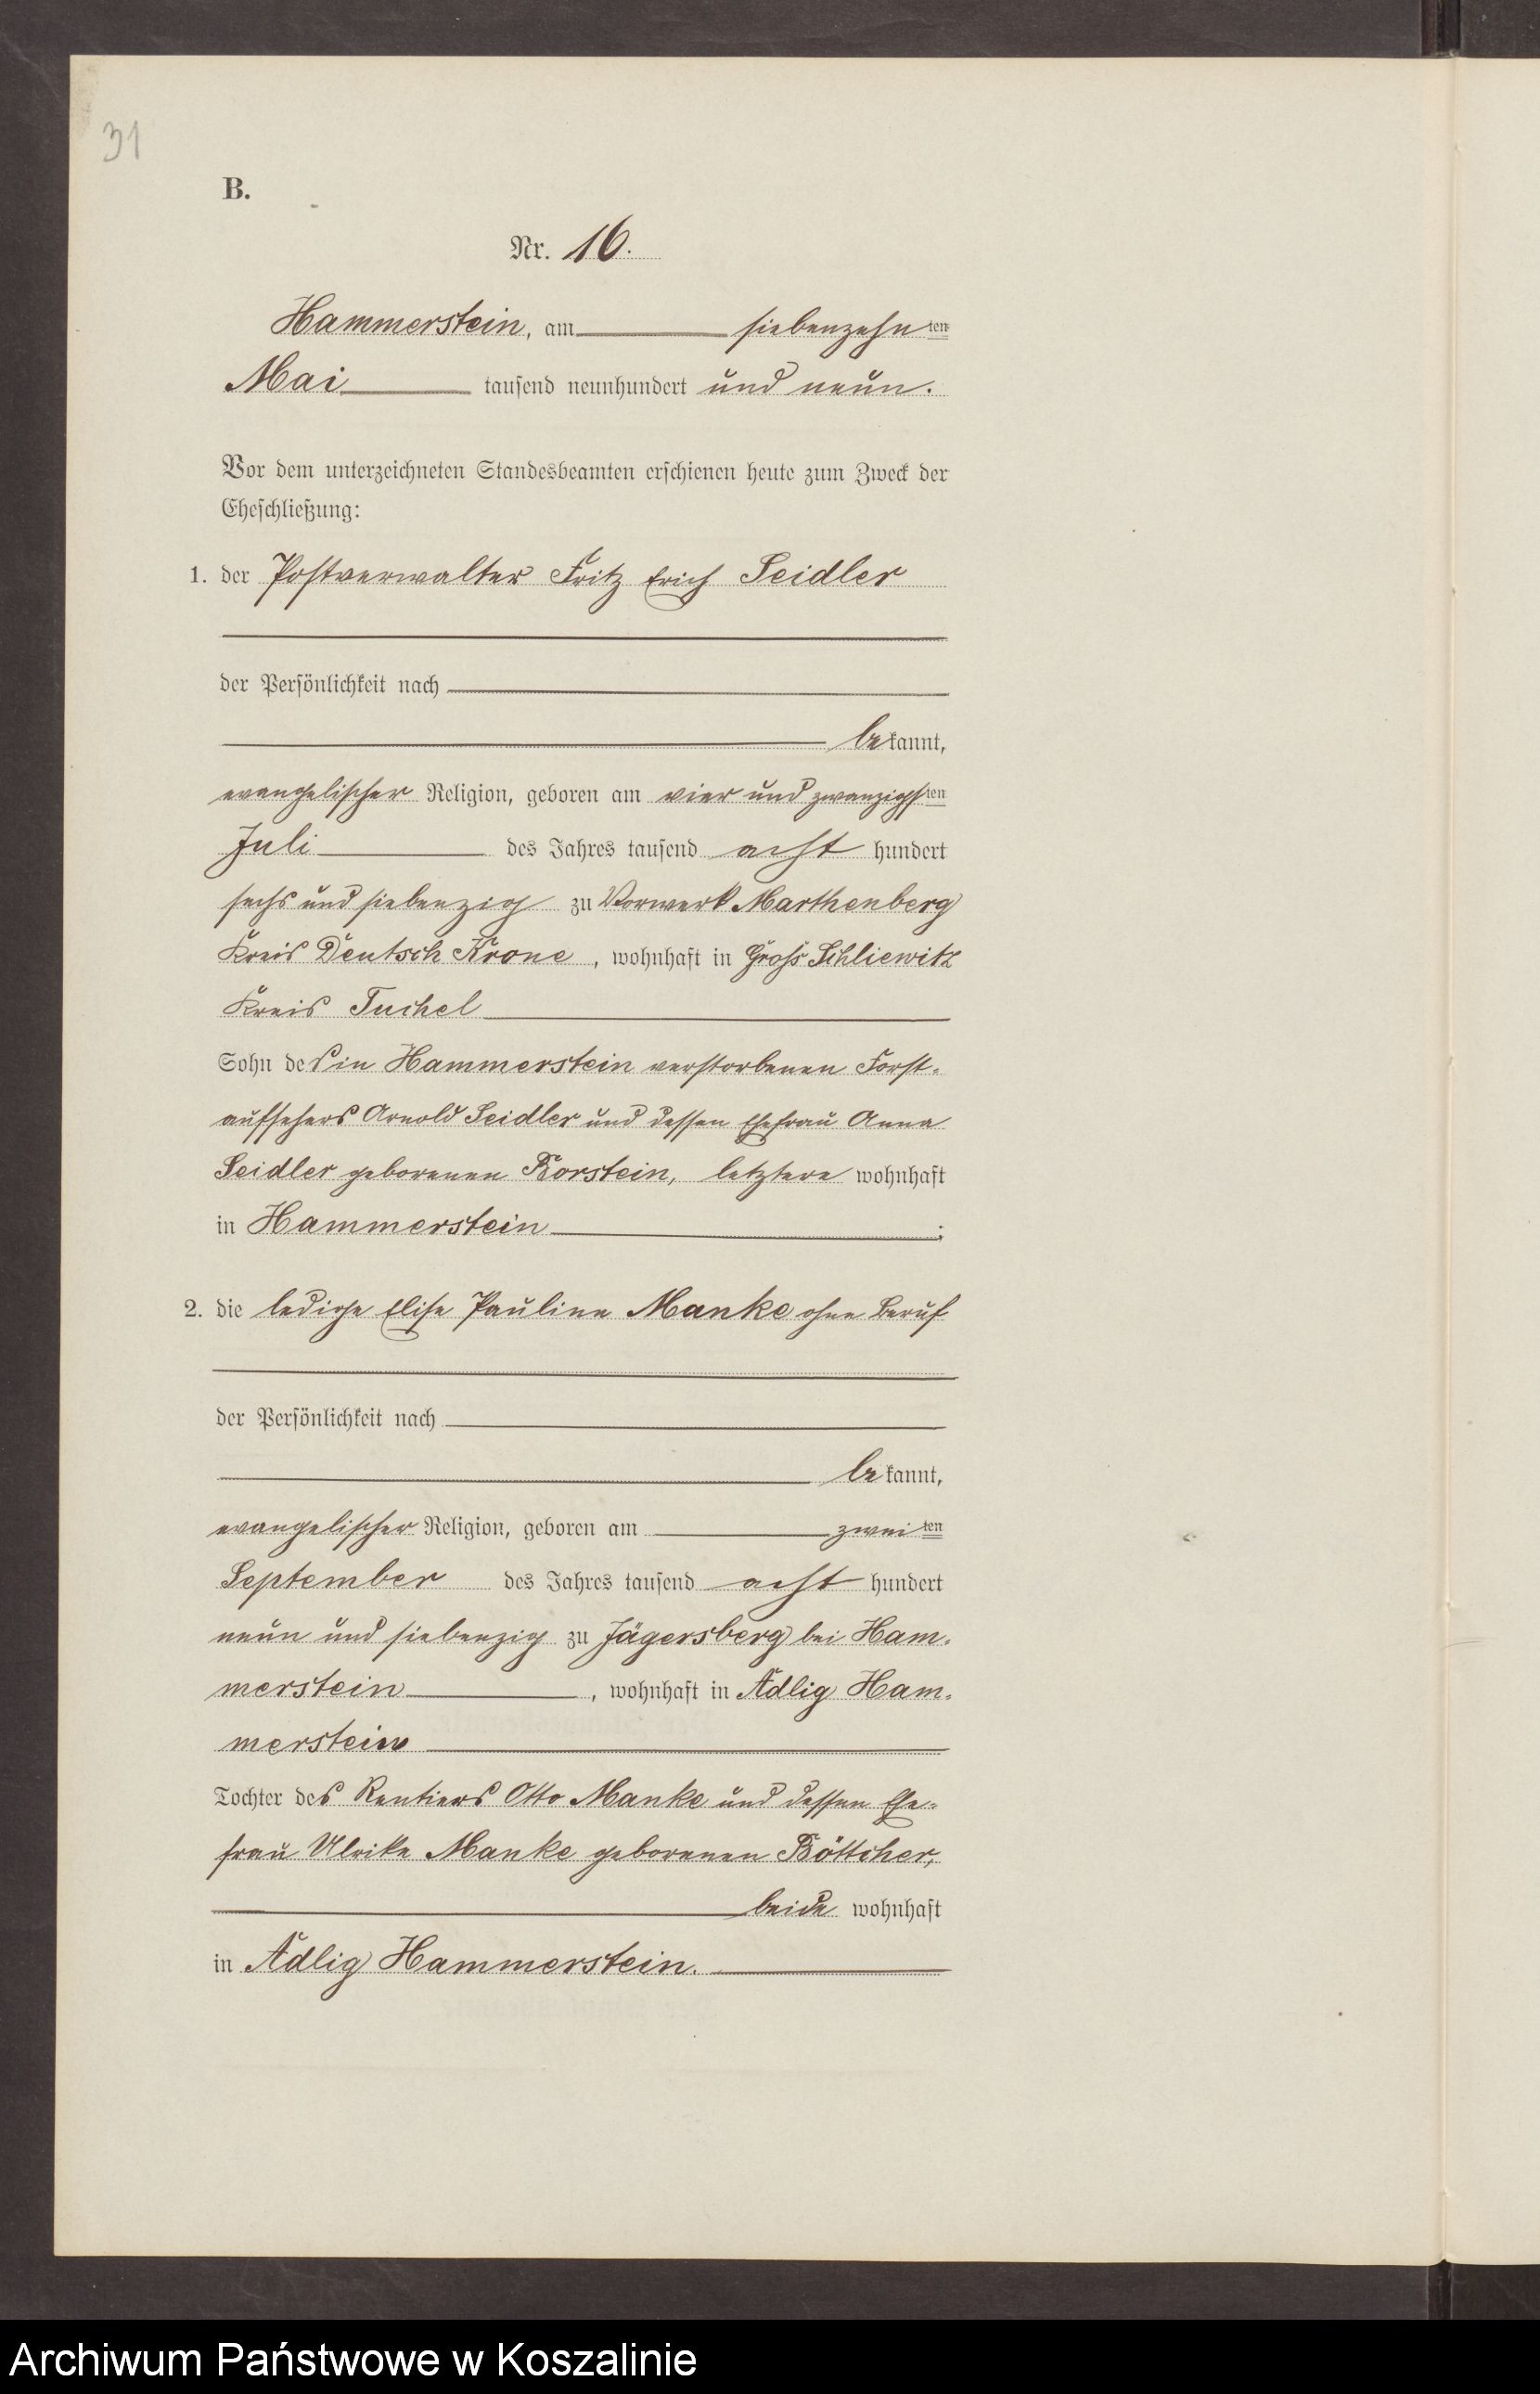 31
B.
Nr. 16.
Hammerstein, am siebenzehnten
Mai tausend neunhundert und neun.
Vor dem unterzeichneten Standesbeamten erschienen heute zum Zweck der
Eheschließung:
1. der Postverwalter Fritz Erich Seidler
der Persönlichkeit nach
bekannt,
evangelischer Religion, geboren am vier und zwanzigsten
Juli des Jahres tausend acht hundert
sechs und siebenzig zu Vorwerk Marthenberg
Kreis Deutsch Krone, wohnhaft in Groß Schliewitz
Kreis Tuchel
Sohn des in Hammerstein verstorbenen Forst-
aufsehers Arnold Seidler und dessen Ehefrau Anna
Seidler geborenen Borstein, letztere wohnhaft
in Hammerstein ;
2. die ledige Elise Pauline Manke ohne Beruf
der Persönlichkeit nach
bekannt,
evangelischer Religion, geboren am zweiten
September des Jahres tausend acht hundert
neun und siebenzig zu Jägersberg bei Ham-
merstein, wohnhaft in Adlig Ham-
merstein
Tochter des Rentiers Otto Manke und dessen Ehe-
frau Ulrike Manke geborenen Böttcher,
beide wohnhaft
in Adlig Hammerstein.
Archiwum Państwowe w Koszalinie